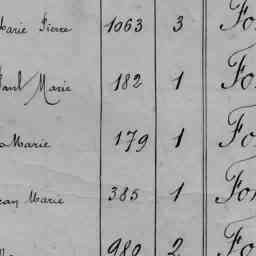 Marie Pierre 1063 3 Fo
Paul Marie 182 1 Fo
Marie 179 1 Fo
Jean Marie 385 1 For
980 2 Fo